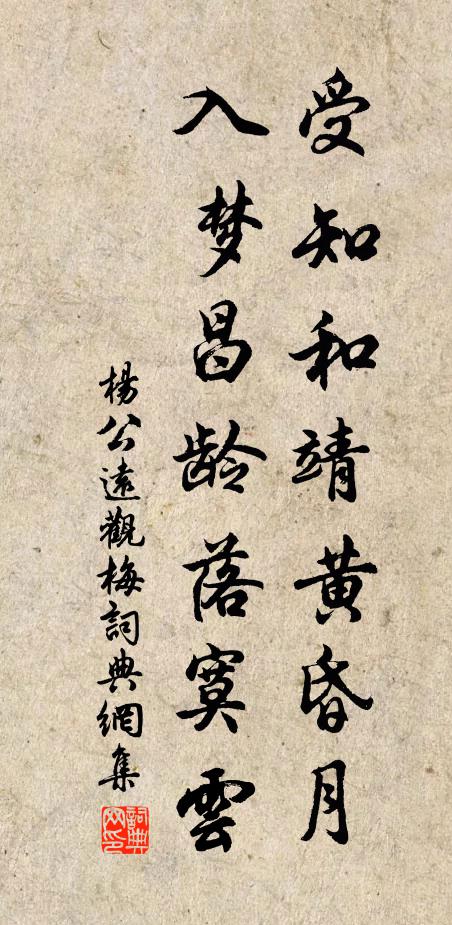 受知和靖黄昏月
入梦昌龄落寞雲
楊公遠觀梅詞典網集
詞典網印